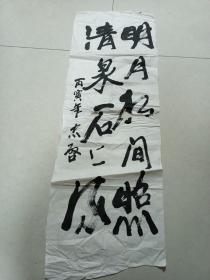 明月松间照
清泉石上流
丙寅年